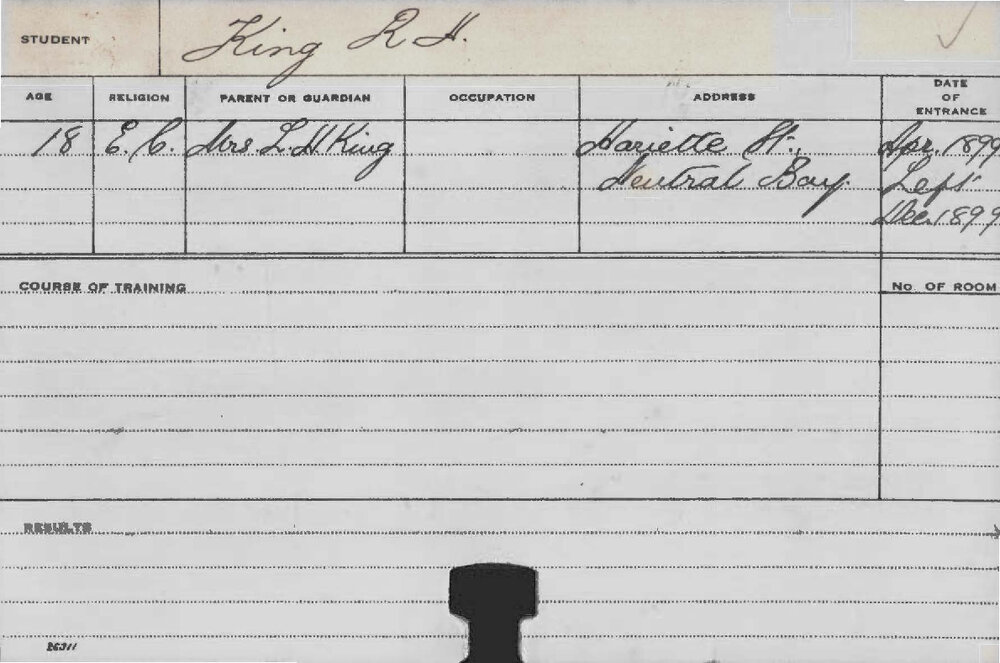 STUDENT King R H.
AGE RELIGION PARENT OR GUARDIAN OCCUPATION ADDRESS DATE OF ENTRANCE
18 E. C. Mrs. L. H King Hariette St., Apr. 1899
Neutral Bay. Left
Dec. 1899
COURSE OF TRAINING No. OF ROOM
RESULTS